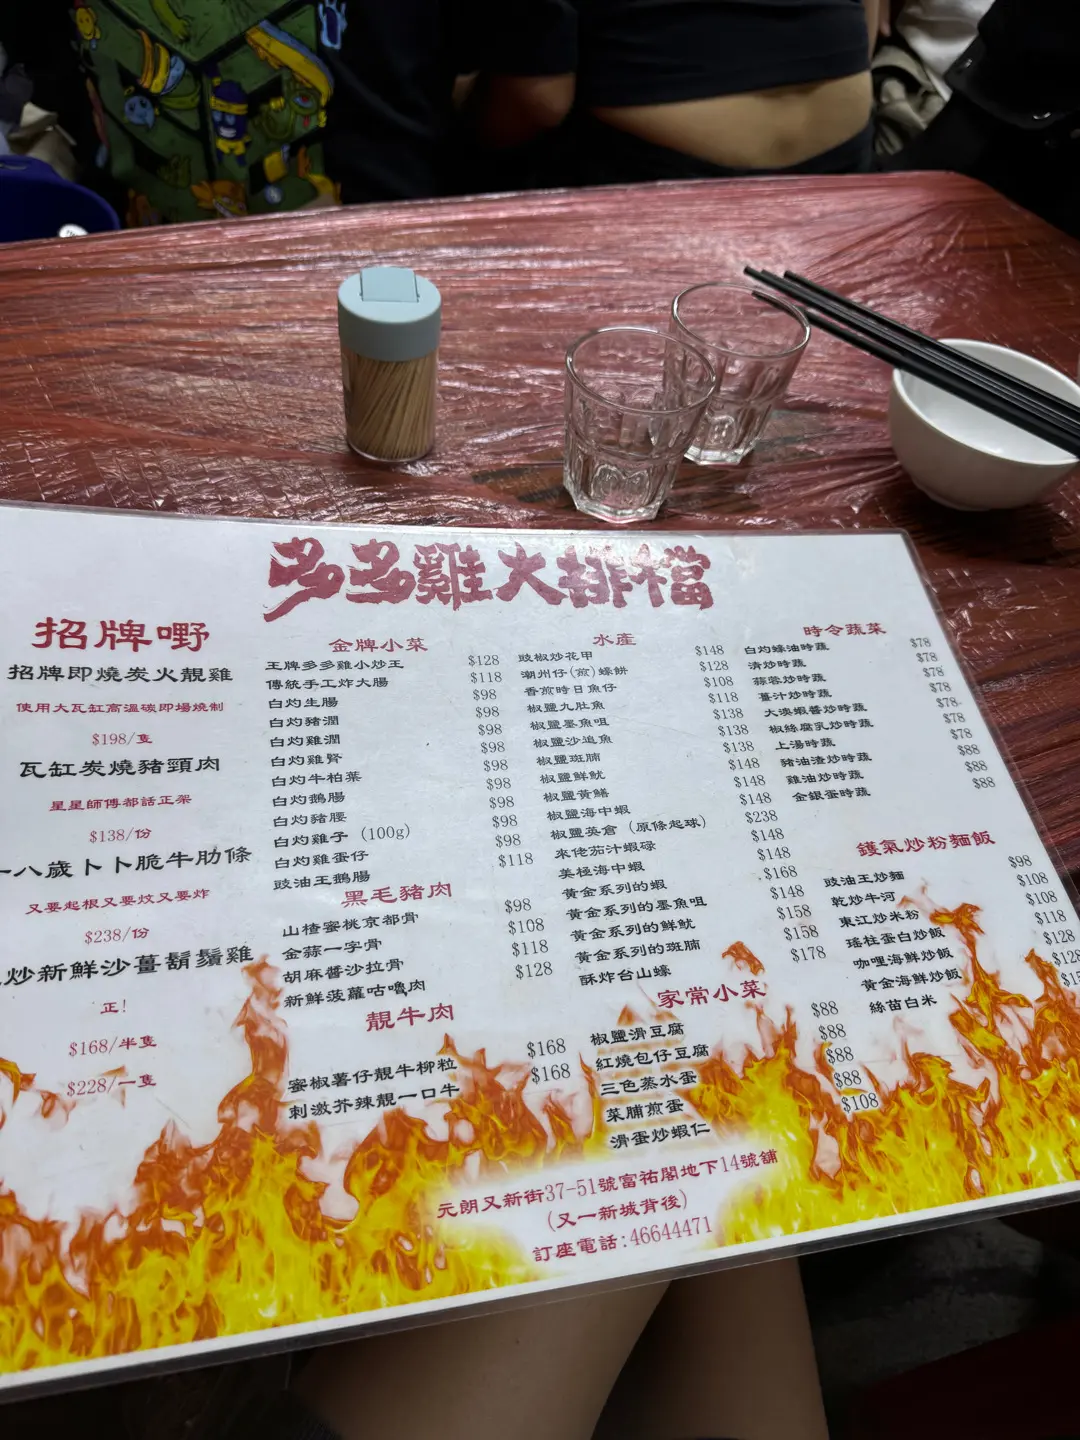 多多雞大排檔
招牌嘢
招牌即燒炭火靚雞
使用大瓦缸高溫碳即場燒制
$198/隻
瓦缸炭燒豬頸肉
星星師傅都話正架
$138/份
十八歲卜卜脆牛肋條
又要起根又要炆又要炸
$238/份
炒新鮮沙薑鬍鬚雞
正!
$168/半隻
$228/一隻
金牌小菜
王牌多多雞小炒王 $128
傳統手工炸大腸 $118
白灼生腸 $98
白灼豬潤 $98
白灼雞潤 $98
白灼雞腎 $98
白灼牛柏葉 $98
白灼鵝腸 $98
白灼豬腰 $98
白灼雞子 (100g) $98
白灼雞蛋仔 $98
豉油王鵝腸 $118
黑毛豬肉
山楂蜜桃京都骨 $98
金蒜一字骨 $108
胡麻醬沙拉骨 $118
新鮮菠蘿咕嚕肉 $128
靚牛肉
蜜椒薯仔靚牛柳粒 $168
刺激芥辣靚一口牛 $168
水產
豉椒炒花甲 $148
潮州仔(煎)蠔餅 $128
香煎時日魚仔 $108
椒鹽九肚魚 $118
椒鹽墨魚咀 $138
椒鹽沙追魚 $138
椒鹽斑腩 $138
椒鹽鮮魷 $148
椒鹽黃鱔 $148
椒鹽海中蝦 $148
椒鹽英倉 (原條起球) $238
來佬茄汁蝦碌 $148
美極海中蝦 $148
黃金系列的蝦 $168
黃金系列的墨魚咀 $148
黃金系列的鮮魷 $158
黃金系列的斑腩 $158
酥炸台山蠔 $178
家常小菜
椒鹽滑豆腐 $88
紅燒包仔豆腐 $88
三色蒸水蛋 $88
菜脯煎蛋 $88
滑蛋炒蝦仁 $108
時令蔬菜
白灼蠔油時蔬 $78
清炒時蔬 $78
蒜蓉炒時蔬 $78
薑汁炒時蔬 $78
大澳蝦醬炒時蔬 $78
椒絲腐乳炒時蔬 $78
上湯時蔬 $78
豬油渣炒時蔬 $88
雞油炒時蔬 $88
金銀蛋時蔬 $88
鑊氣炒粉麵飯
豉油王炒麵 $98
乾炒牛河 $108
東江炒米粉 $108
瑤柱蛋白炒飯 $118
咖哩海鮮炒飯 $128
黃金海鮮炒飯 $128
絲苗白米
元朗又新街37-51號富祐閣地下14號舖
(又一新城背後)
訂座電話:46644471